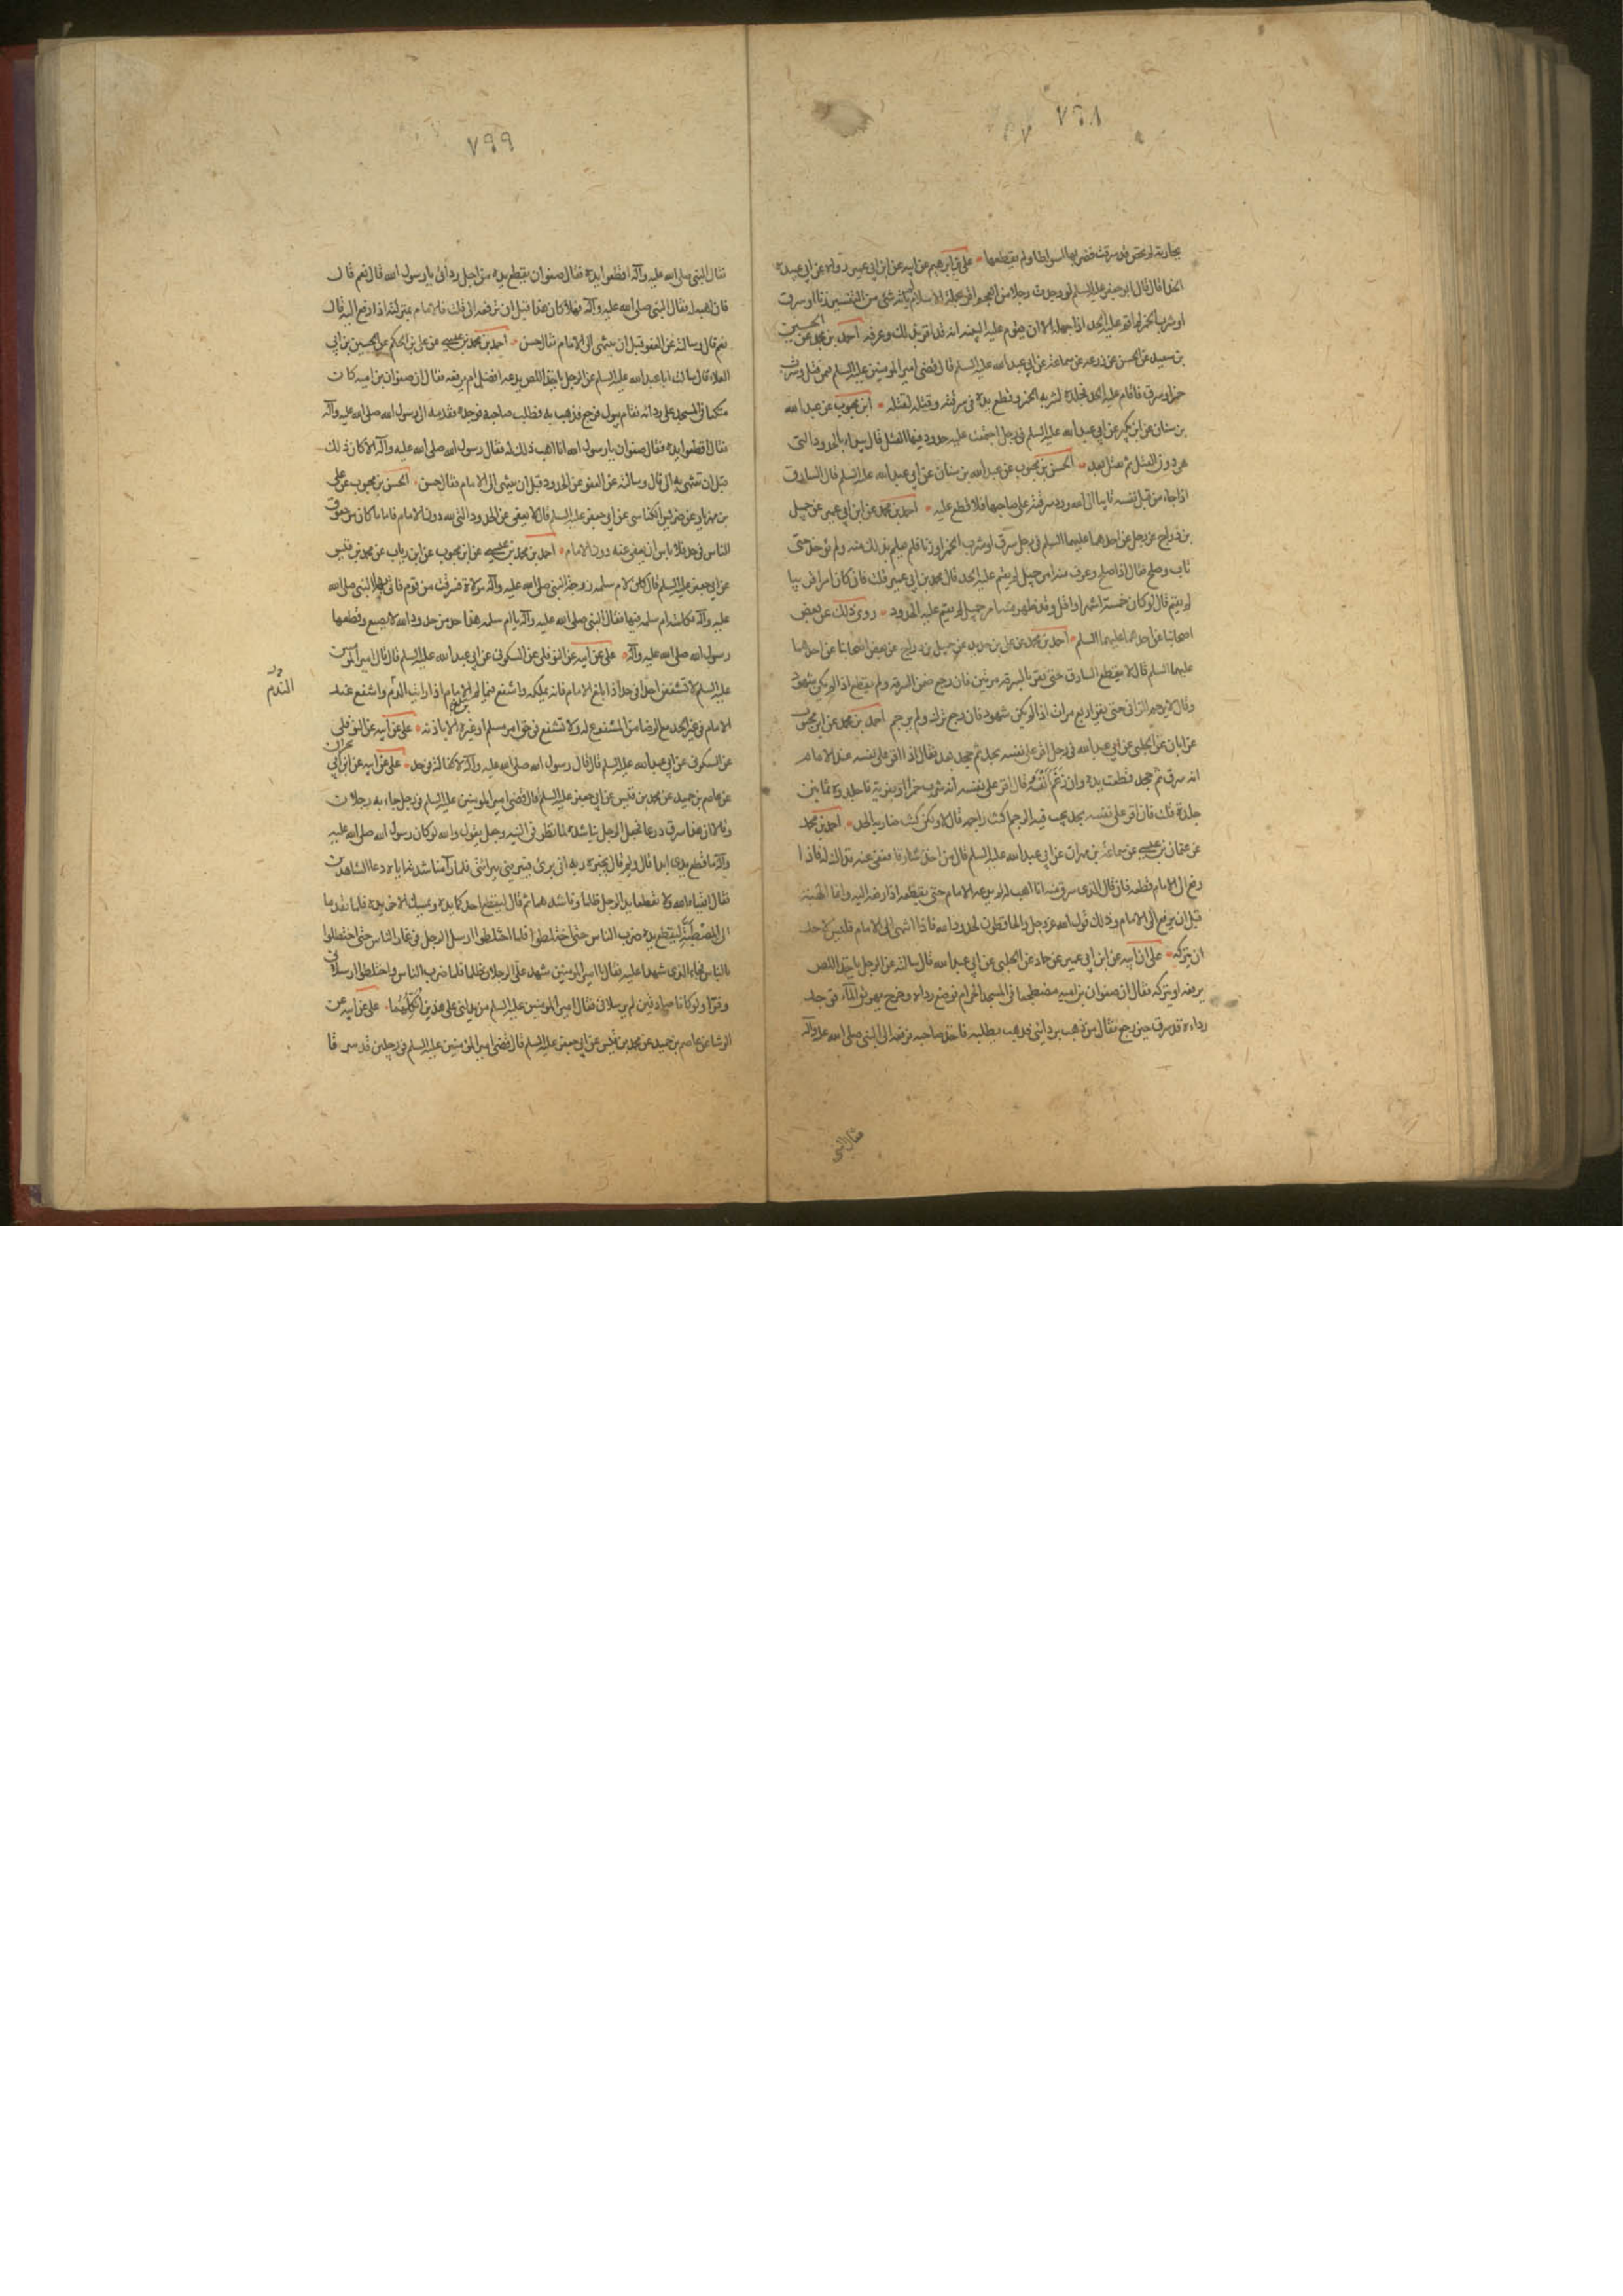 ٧٩٨
بجارية لم تحض قد سرقت فضربها اسواطا ولم يقطعها علي بن ابرهيم عن ابيه عن ابن ابي عمير رواه عن ابي عبيدة
الحذا قال قال ابو جعفر عليه السلم لو وجدت رجلا من العجم اقر بجملة الاسلام لم ياته شئ من التفسير زنا او سرق
او شرب الخمر لم اقم عليه الحد اذا جهله الا ان يقوم عليه البينه انه قد اقر بذلك وعرفه احمد بن محمد عن الحسين
بن سعيد عن الحسن عن زرعه عن سماعة عن ابي عبد الله عليه السلم قال قضى امير المومنين عليه السلم فمن قتل وشرب
خمرا وسرق فاقام عليه الحد فجلده لشربه الخمر وقطع يده في سرقته وقتله لقتله ابن محبوب عن عبد الله
بن سنان عن ابن بكير عن ابي عبد الله عليه السلم في رجل اجتمعت عليه حدود فيها القتل قال يبداء بالحدود التي
هي دون القتل ثم يقتل بعد الحسن بن محبوب عن عبد الله بن سنان عن ابي عبد الله عليه السلم قال السارق
اذا جاء من قبل نفسه تايبا الى الله ورد سرقته على صاحبها فلا قطع عليه احمد بن محمد عن ابن ابي عمير عن جميل
بن دراج عن رجل عن احدهما عليهما السلم في رجل سرق او شرب الخمر او زنا فلم يعلم بذلك منه ولم يوخذ حتى
تاب وصلح فقال اذا صلح وعرف منه امر جميل لم يقم عليه الحد قال محمد بن ابي عمير قلت فان كان امرا قريبا
لم يقم قال لو كان خمسة اشهر او اقل وقد ظهر منه امر جميل لم يقم عليه الحدود روى ذلك عن بعض
اصحابنا عن احدهما عليهما السلم احمد بن محمد عن علي بن حديد عن جميل بن دراج عن بعض اصحابنا عن احدهما
عليهما السلم قال لا يقطع السارق حتى يقر بالسرقه مرتين فان رجع ضمن السرقه ولم يقطع اذا لم يكن شهود
وقال لا يرجم الزاني حتى يقر اربع مرات اذا لم يكن شهود فان رجع ترك ولم يرجم احمد بن محمد عن ابن محبوب
عن ابان عن الحلبي عن ابي عبد الله في رجل اقر على نفسه بحد ثم جحد بعد فقال اذا اقر على نفسه عند الامام
انه سرق ثم جحد قطعت يده وان رغم انفه قال اقر على نفسه انه شرب خمرا او بفرية فاجلدوه ثمانين
جلدة قلت فان اقر على نفسه بحد يجب فيه الرجم اكنت راجمه قال لا ولكن كنت ضاربه الحد احمد بن محمد
عن عثمان بن عيسى عن سماعة بن مهران عن ابي عبد الله عليه السلم قال من اخذ سارقا فعفى عنه فذاك له فاذا
رفع الى الامام قطعه فان قال الذي سرق منه انا اهب له لم يدعه الامام حتى يقطعه اذا رفعه اليه وانما الهبة
قبل ان يرفع الى الامام وذلك قول الله عز وجل والحافظون لحدود الله فاذا انتهى الى الامام فليس لاحد
ان يتركه علي عن ابيه عن ابن ابي عمير عن حماد عن الحلبي عن ابي عبد الله قال سالته عن الرجل ياخذ اللص
يرفعه او يتركه فقال ان صفوان بن اميه مضطجعا في المسجد الحرام فوضع رداه وخرج يهريق الماء فوجد
رداءه قد سرق حين رجع فقال من ذهب بردائي فذهب يطلبه فاخذ صاحبه فرفعه الى النبي صلى الله عليه وآله
فقال النبي
٧٩٩
فقال النبي صلى الله عليه وآله اقطعوا يده فقال صفوان يقطع يده من اجل ردائي يا رسول الله قال نعم قال
فانا اهبه له فقال النبي صلى الله عليه وآله فهلا كان هذا قبل ان ترفعه الى قلت فالامام بمنزلته اذا رفع اليه قال
نعم قال وسالته عن العفو قبل ان ينتهى الى الامام فقال حسن احمد بن محمد بن عيسى عن علي بن الحكم عن الحسين بن ابي
العلاء قال سالت ابا عبد الله عليه السلم عن الرجل ياخذ اللص يدعه افضل ام يرفعه فقال ان صفوان بن اميه كان
متكئا في المسجد على ردائه فقام يبول فرجع فذهب به فطلب صاحبه فوجده فقدمه الى رسول الله صلى الله عليه وآله
فقال اقطعوا يده فقال صفوان يا رسول الله انا اهب ذلك له فقال رسول الله صلى الله عليه وآله الا كان ذلك
قبل ان تنتهى به الى قال وسالته عن العفو عن الحدود قبل ان ينتهى الى الامام فقال حسن الحسن بن محبوب عن علي
بن رياب عن ضريس الكناسي عن ابي جعفر عليه السلم قال لا يعفى عن الحدود التي لله دون الامام فاما ما كان من حقوق
الناس في حد فلا باس ان يعفى عنه دون الامام احمد بن محمد بن عيسى عن ابن محبوب عن ابن رياب عن محمد بن قيس
عن ابي جعفر عليه السلم قال كان لام سلمه زوجة النبي صلى الله عليه وآله مولاة فسرقت من قوم فاتى بها النبي صلى الله
عليه وآله فكلمته ام سلمه فيها فقال النبي صلى الله عليه وآله يا ام سلمه هذا حد من حدود الله لا يضيع وقطعها
رسول الله صلى الله عليه وآله علي عن ابيه عن النوفلي عن السكوني عن ابي عبد الله عليه السلم قال قال امير المومنين
عليه السلم لا تشفعن احدا في حد اذا بلغ الامام فانه يملكه واشفع فيما لم يبلغ الامام اذا رايت الدم واشفع عند
الندم
الامام في غير الحد مع الرضا من المشفوع له ولا تشفع في حق امرء مسلم او غيره الا باذنه علي عن ابيه عن النوفلي
عن السكوني عن ابي عبد الله عليه السلم قال قال رسول الله صلى الله عليه وآله لا كفالة في حد علي عن ابيه عن ابن ابي نجران
عن عاصم بن حميد عن محمد بن قيس عن ابي جعفر عليه السلم قال قضى امير المومنين عليه السلم في رجل جاء به رجلان
وقالا ان هذا سرق درعا فجعل الرجل يناشده لما نظر في البينه وجعل يقول والله لو كان رسول الله صلى الله عليه
وآله ما قطع يدي ابدا قال ولم قال يخبره ربه اني برئ فيبريني ببرائتي فلما راى مناشدته اياه دعا الشاهدين
فقال اتقيا الله ولا تقطعا يد الرجل ظلما وناشدهما ثم قال ليقطع احدكما يده ويمسك الاخر يده فلما تقدما
الى المصطبة ليقطع يده ضرب الناس حتى اختلطوا فلما اختلطوا ارسلا الرجل في غمار الناس حتى اختلطوا
بالناس فجاء الذي شهدا عليه فقال يا امير المومنين شهد علي الرجلان ظلما فلما ضرب الناس واختلطوا ارسلاني
وفرا ولو كانا صادقين لم يرسلاني فقال امير المومنين عليه السلم من يدلني على هذين انكلهما علي عن ابيه عن
الوشا عن عاصم بن حميد عن محمد بن قيس عن ابي جعفر عليه السلم قال قضى امير المومنين عليه السلم في رجلين قد سرقا